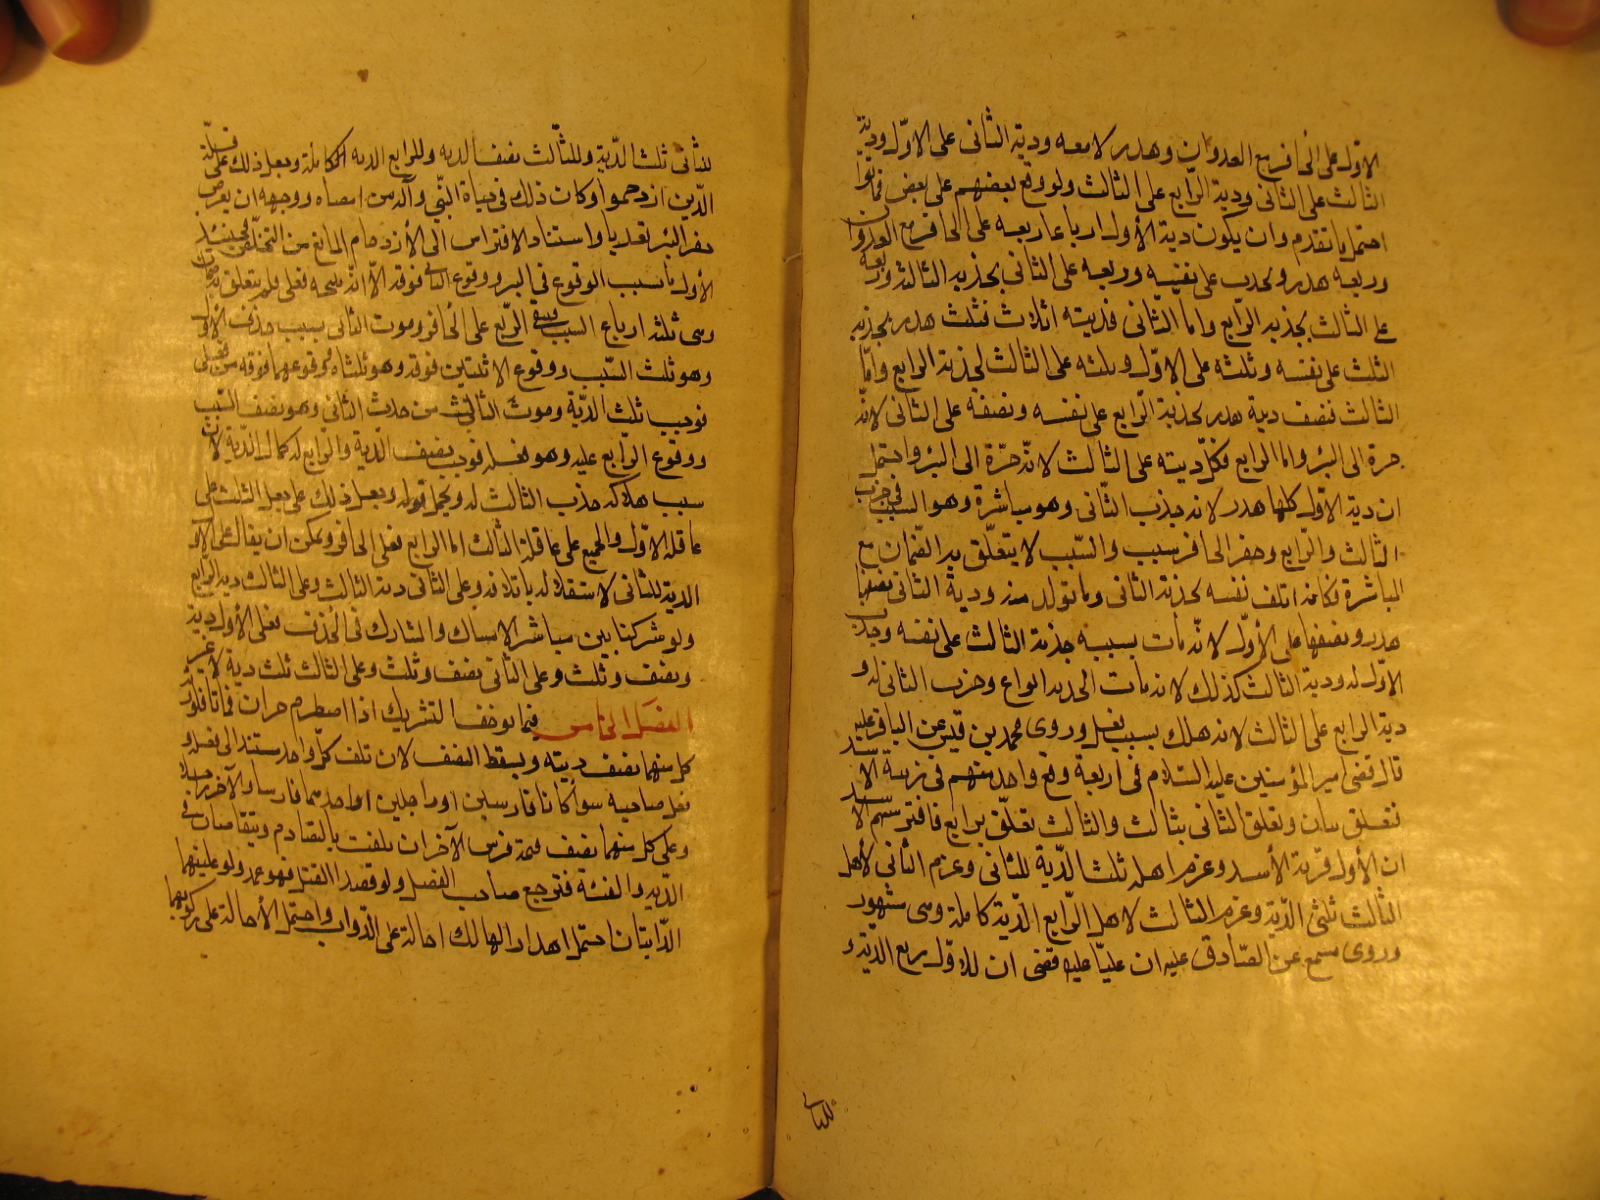 الاوّل على الحافر مع العدوان وهدر لا معه ودية الثانى على الاوّل ودية
الثالث على الثانى ودية الرّابع على الثالث ولو وقع بعضهم على بعض فماتوا
احتمل ما تقدم وان يكون دية الأول ارباعا ربعه على الحافر مع العدوان
وربعه هدر وبجذب على نفسه وربعه على الثانى بجذبه الثالث وربعه
على الثالث بجذبه الرّابع وامّا الثّانى فديته اثلاث فثلث هدر بجذبه
الثلث على نفسه وثلثه على الاوّل وثلثه على الثالث لجذبه الرابع وامّا
الثالث فنصف دية هدر بجذبه الرّابع على نفسه ونصفه على الثانى لانّه
جره الى البئر واما الرابع فكلّ ديته على الثالث لانّه جرّه الى البئر واحتمل
ان دية الاوّل كلها هدر لانه جذب الثّانى وهو مباشرة وهو السبب فى جذب
الثالث والرّابع وحفر الحافر سبب والسّبب لا يتعلّق به الضّمان مع
المباشرة فكانه اتلف نفسه بجذبه الثانى وما تولد منه ودية الثانى نصفها
هدر ونصفها على الأوّل لانّه مات بسببه جذبه الثالث على نفسه وجذب
الاوّل له ودية الثالث كذلك لانه مات بجذبه الرابع وجذب الثانى له و
دية الرابع على الثالث لانه هلك بسبب فعله وروى محمد بن قيس عن الباقر عليه
قال قضى امير المؤمنين عليه السّلام فى اربعة وقع واحد منهم فى زبية الاسد
فتعلق بثان وتعلق الثانى بثالث والثالث تعلّق برابع فافترسهم الاسد
ان الأول فريسة الأسد وغرم اهله ثلث الدّية للثانى وغرم الثانى لأهل
الثالث ثلثى الدّية وغرم الثالث لاهل الرّابع الدّية كاملة وهى مشهور
وروى مسمع عن الصّادق عليه ان عليّا عليه قضى ان للاوّل ربع الدّية و
للثانى
للثانى ثلث الدّية وللثّالث نصف الديه وللرابع الديه الكاملة وجعل ذلك على قبائل
الدّين ازدحموا وكان ذلك فى حياة النّبى وآله من امضاه ووجهه ان يعرض
حفر البئر تعديا واستناد الافتراس الى الأزدحام المانع من التخلّص فحينئذ
الأول مات بسبب الوقوع فى البئر ووقوع الثلثة فوقه الّا انه بسببه فعلى فلم يتعلق به ضمان
وهى ثلثه ارباع السبب فبقى الرّبع على الحافر وموت الثانى بسبب جذب الأول
وهو ثلث السّبب ووقوع الاثنين فوقه وهو ثلثاه ووقوعهما فوقه من فعله
فوجب ثلث الديّة وموت الثالث من جذب الثانى وهو نصف السّبب
ووقوع الرّابع عليه وهو فعله فوجب نصف الدّية والرّابع له كمال الدّية لان
سبب هلاكه جذب الثالث له ويحمل قوله وجعل ذلك على جعل الثلث على
عاقلة الاوّل والجميع على عاقلة الثالث اما الرابع فعلى الحافر ويمكن ان يقال على الاوّل
الدية للثانى لاستقلاله باتلافه وعلى الثانى دية الثالث وعلى الثالث دية الرّابع
ولو شركنا بين مباشر الامساك والمشارك فى الجذب فعلى الأول دية
ونصف وثلث وعلى الثّانى نصف وثلث وعلى الثالث ثلث دية لا غير
الفصل الخامس فيما يوجب التشريك اذا اصطدم حران فماتا فلورثة
كل منهما نصف ديته ويسقط النصف لان تلف كلّ واحد مستند الى فعله و
فعل صاحبه سوا كانا فارسين او راجلين او احدهما فارسا والآخر راجلا
وعلى كل منهما نصف قيمة فرس الآخر ان تلفت بالتصادم ويتقاصان فى
الدّيه والقيمة فترجع صاحب الفضل ولو قصدا القتل فهو عمد ولو غلبتهما
الدّابتان احتمل اهدار الهالك احالة على الدّواب واحتمل الأحالة على ركوبهما